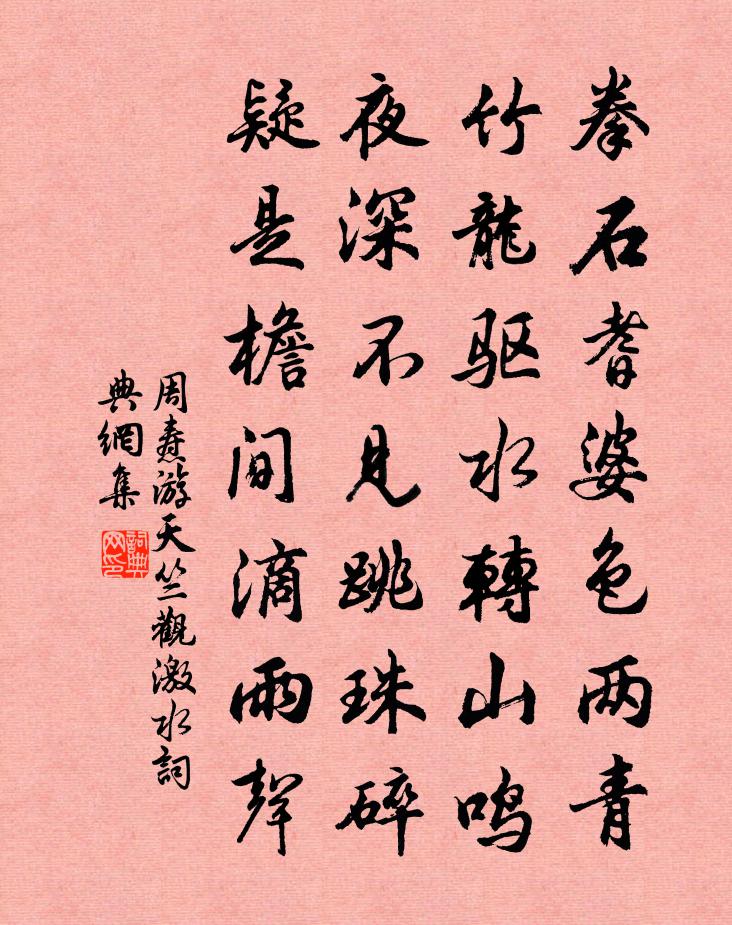 拳石耆婆色两青
竹龍驱水轉山鸣
夜深不见跳珠碎
疑是檐间滴雨聲
周焘游天竺觀激水詞
典網集
詞典
网印